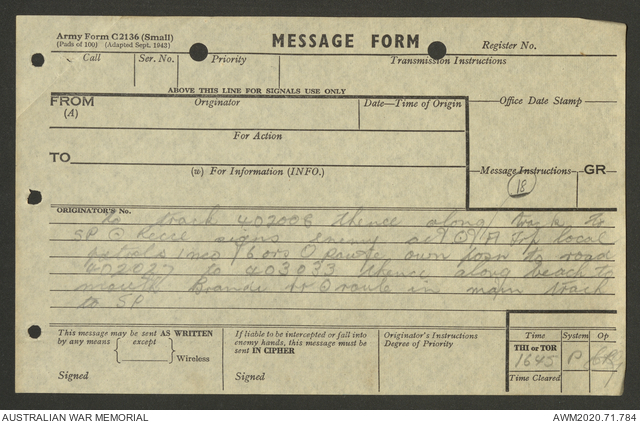 Army Form C2136 (Small)
(Pads of 100) (Adapted Sept. 1943)
MESSAGE FORM
Register No.
Call
Ser. No.
Priority
Transmission Instructions
ABOVE THIS LINE FOR SIGNALS USE ONLY
FROM
(A)
Originator
Date—Time of Origin
Office Date Stamp
For Action
TO
(W) For Information (INFO.)
Message Instructions
GR
18
ORIGINATOR'S No.
to track 402006 thence along track to
SP Recce signs enemy act A Tp local
patrols 6 ors route own posn to road
402027 to 403033 thence along beach to
mouth route in main track
to SP
This message may be sent AS WRITTEN
by any means
except
Wireless
Signed
If liable to be intercepted or fall into
enemy hands, this message must be
sent IN CIPHER
Signed
Originator's Instructions
Degree of Priority
Time
System
Op
THI or TOR
1645
P
Time Cleared
AUSTRALIAN WAR MEMORIAL
AWM2020.71.784